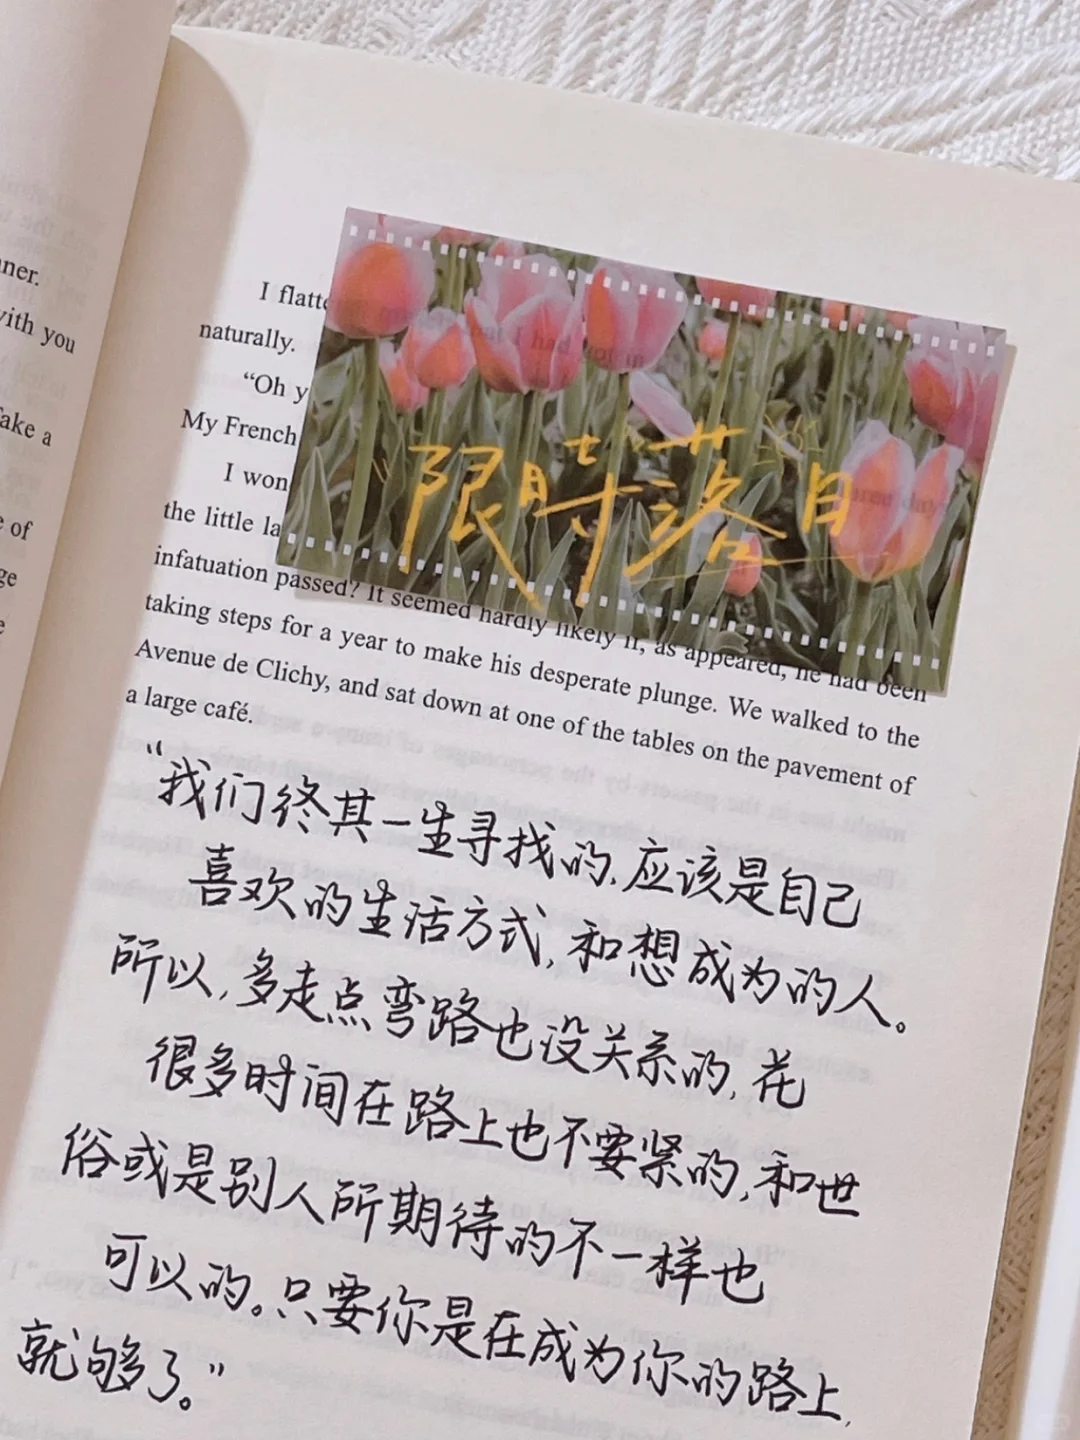 nner.
with you
Take a
e of
ge
e
I flatte
naturally.
“Oh y
My French
I won
the little la
infatuation passed? It seemed hardly likely if, as appeared, he had been
taking steps for a year to make his desperate plunge. We walked to the
Avenue de Clichy, and sat down at one of the tables on the pavement of
a large café.
that I had not in
three day
限时落日
“我们终其一生寻找的,应该是自己
喜欢的生活方式,和想成为的人。
所以,多走点弯路也没关系的,花
很多时间在路上也不要紧的,和世
俗或是别人所期待的不一样也
可以的。只要你是在成为你的路上,
就够了。”